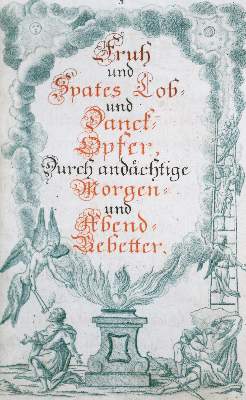 Fruh
und
Spates Lob-
und
Danck-
Opfer,
Durch andächtige
Morgen-
und
Abend-
Gebetter.